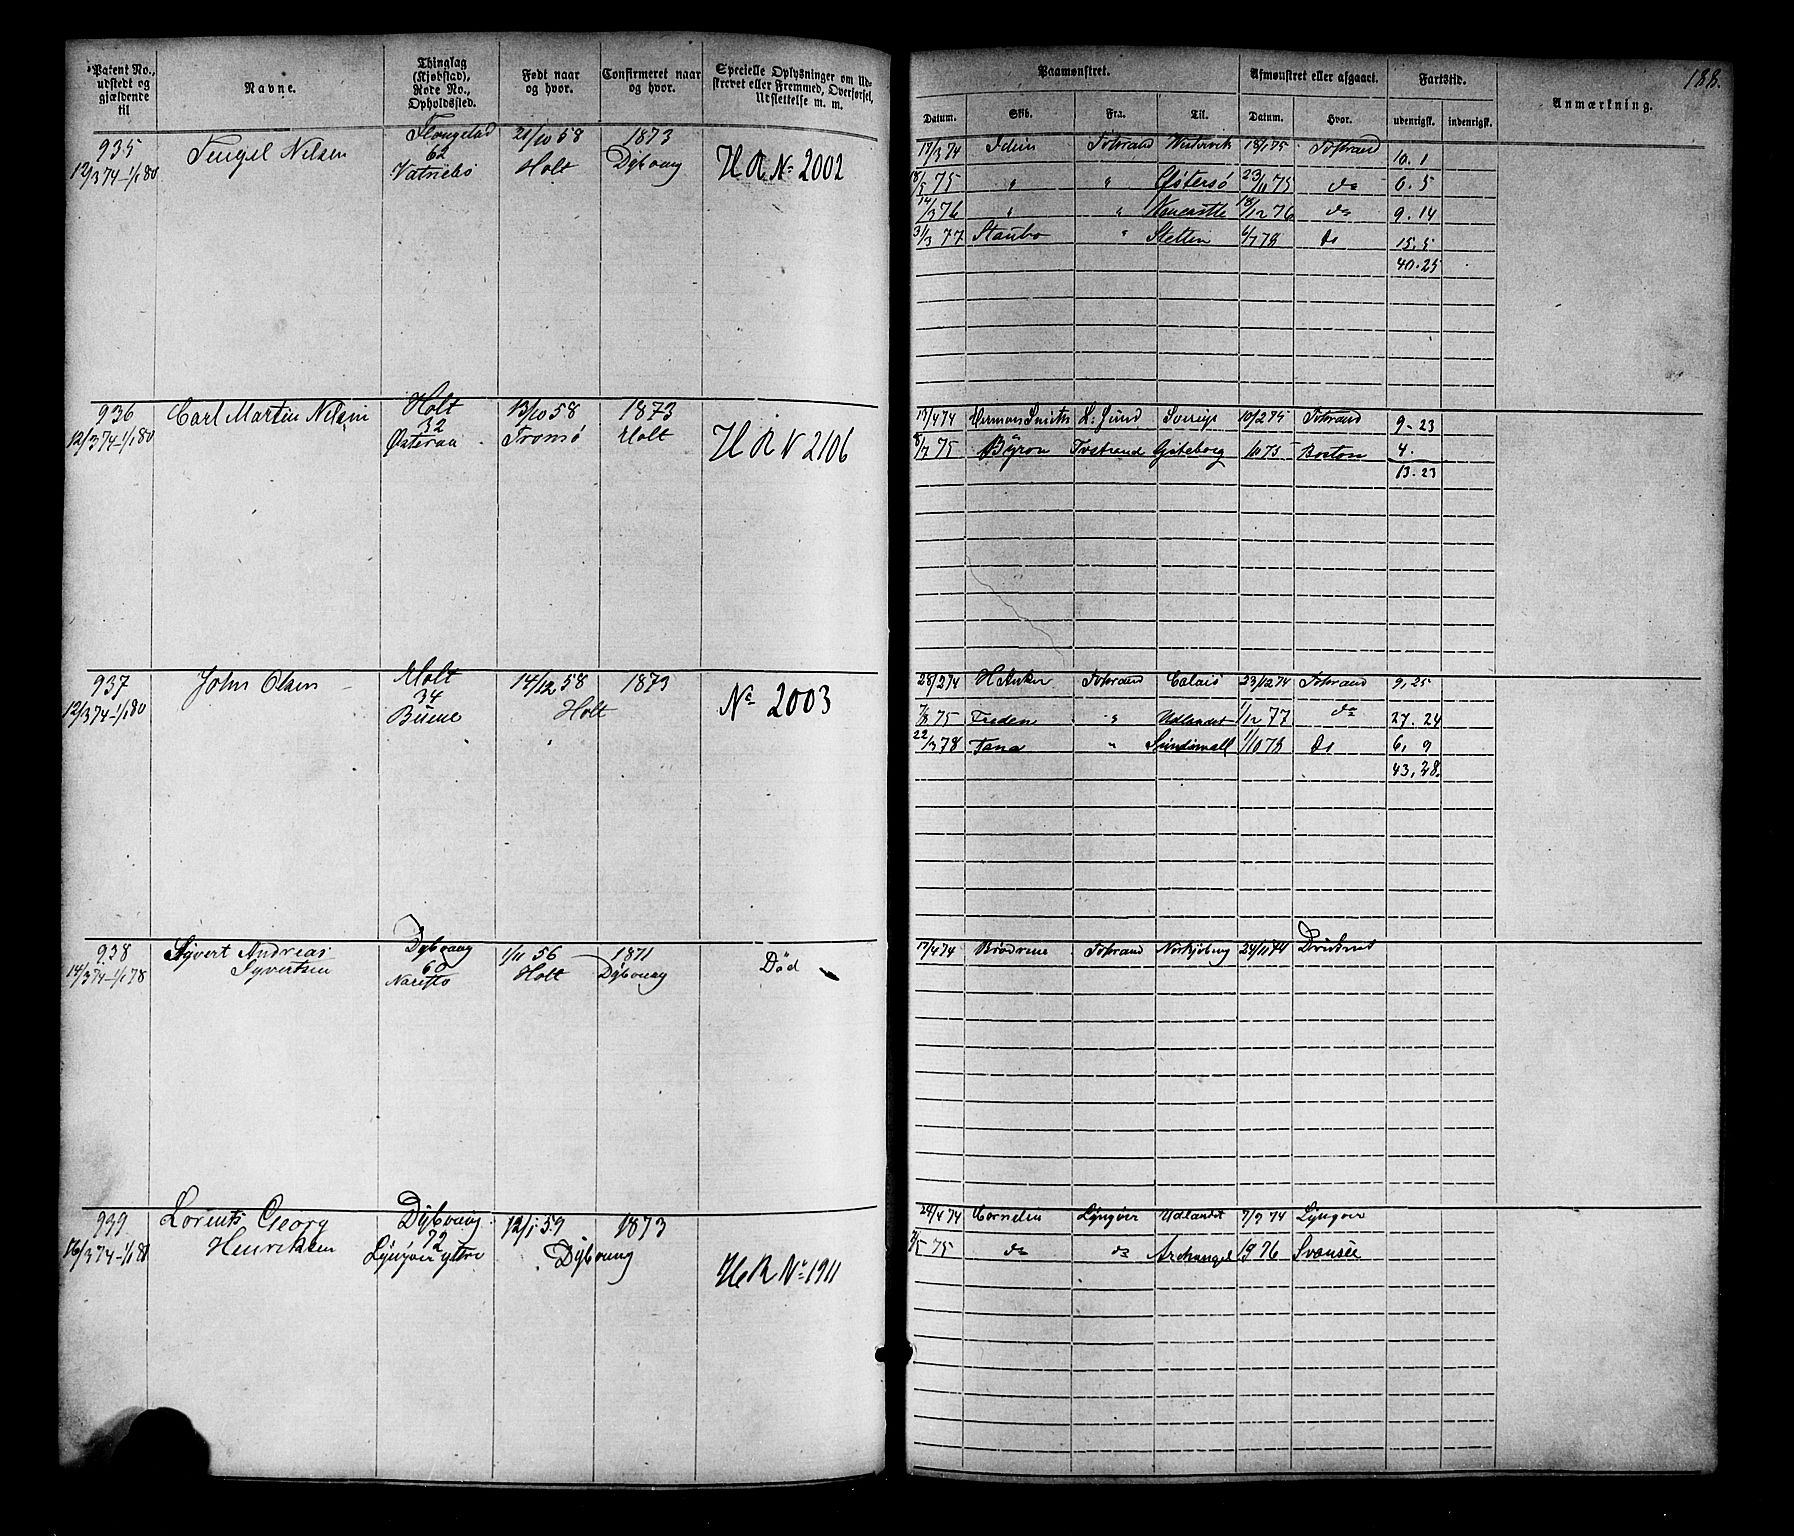 188.
Patent No., udstedt og gjældende til
Navne.
Thinglag (Kjøbstad), Rode No., Opholdssted.
Født naar og hvor.
Confirmeret naar og hvor.
Specielle Oplysninger om Udstrevet eller Fremmed, Overførsel, Udslettelse m. m.
Paamønstret.
Afmønstret eller afgaaet.
Fartstid.
Anmærkning.
Datum. Skib. Fra. Til. Datum. Hvor. udenrigsk. indenrigsk.
935 Tengel Nilsen 62 21/10 58 1873 H R No 2002
12/3 74-1/1 80 Holt Dybvaag
17/3 74 Tvedestrand 10. 1
18/5 75 " " Østersø 23/11 75 do 6. 5
14/3 76 " " 18/12 76 do 9. 14
31/3 77 Staubo " Stettin do 15. 5
40. 25
936 Carl Martin Nilsen Holt 32 13/10 58 1873 H R N 2106
12/3 74-1/1 80 Østeraa Tromsø Holt
17/4 74 Herman Smith Sverige 10/2 75 9-23
8/7 75 Byron Gøteborg Boston 4.
13. 23
937 John Olsen Holt 34 14/12 58 1873 No 2003
12/3 74-1/1 80 Holt
28/2 74 H Anker Calais 23/12 74 9, 25
7/8 75 " Udlandet 1/12 77 do 27. 24
22/3 78 Tana " 1/10 78 do 6, 9
938 Syvert Andreas Syvertsen Dybvaag 60 1/11 56 1871 Død
14/3 74-1/1 78 Narestø Holt Dybvaag
17/4 74 Brødrene 24/11 74
939 Lorents Georg Henriksen Dybvaag 72 12/1 59 1873
16/3 74-1/1 80 Lyngøer ytre Dybvaag H R No 1911
24/4 74 Cornelia Lyngøer Udlandet 7/9 74 Lyngøer
75 do do Archangel 76 Svansee